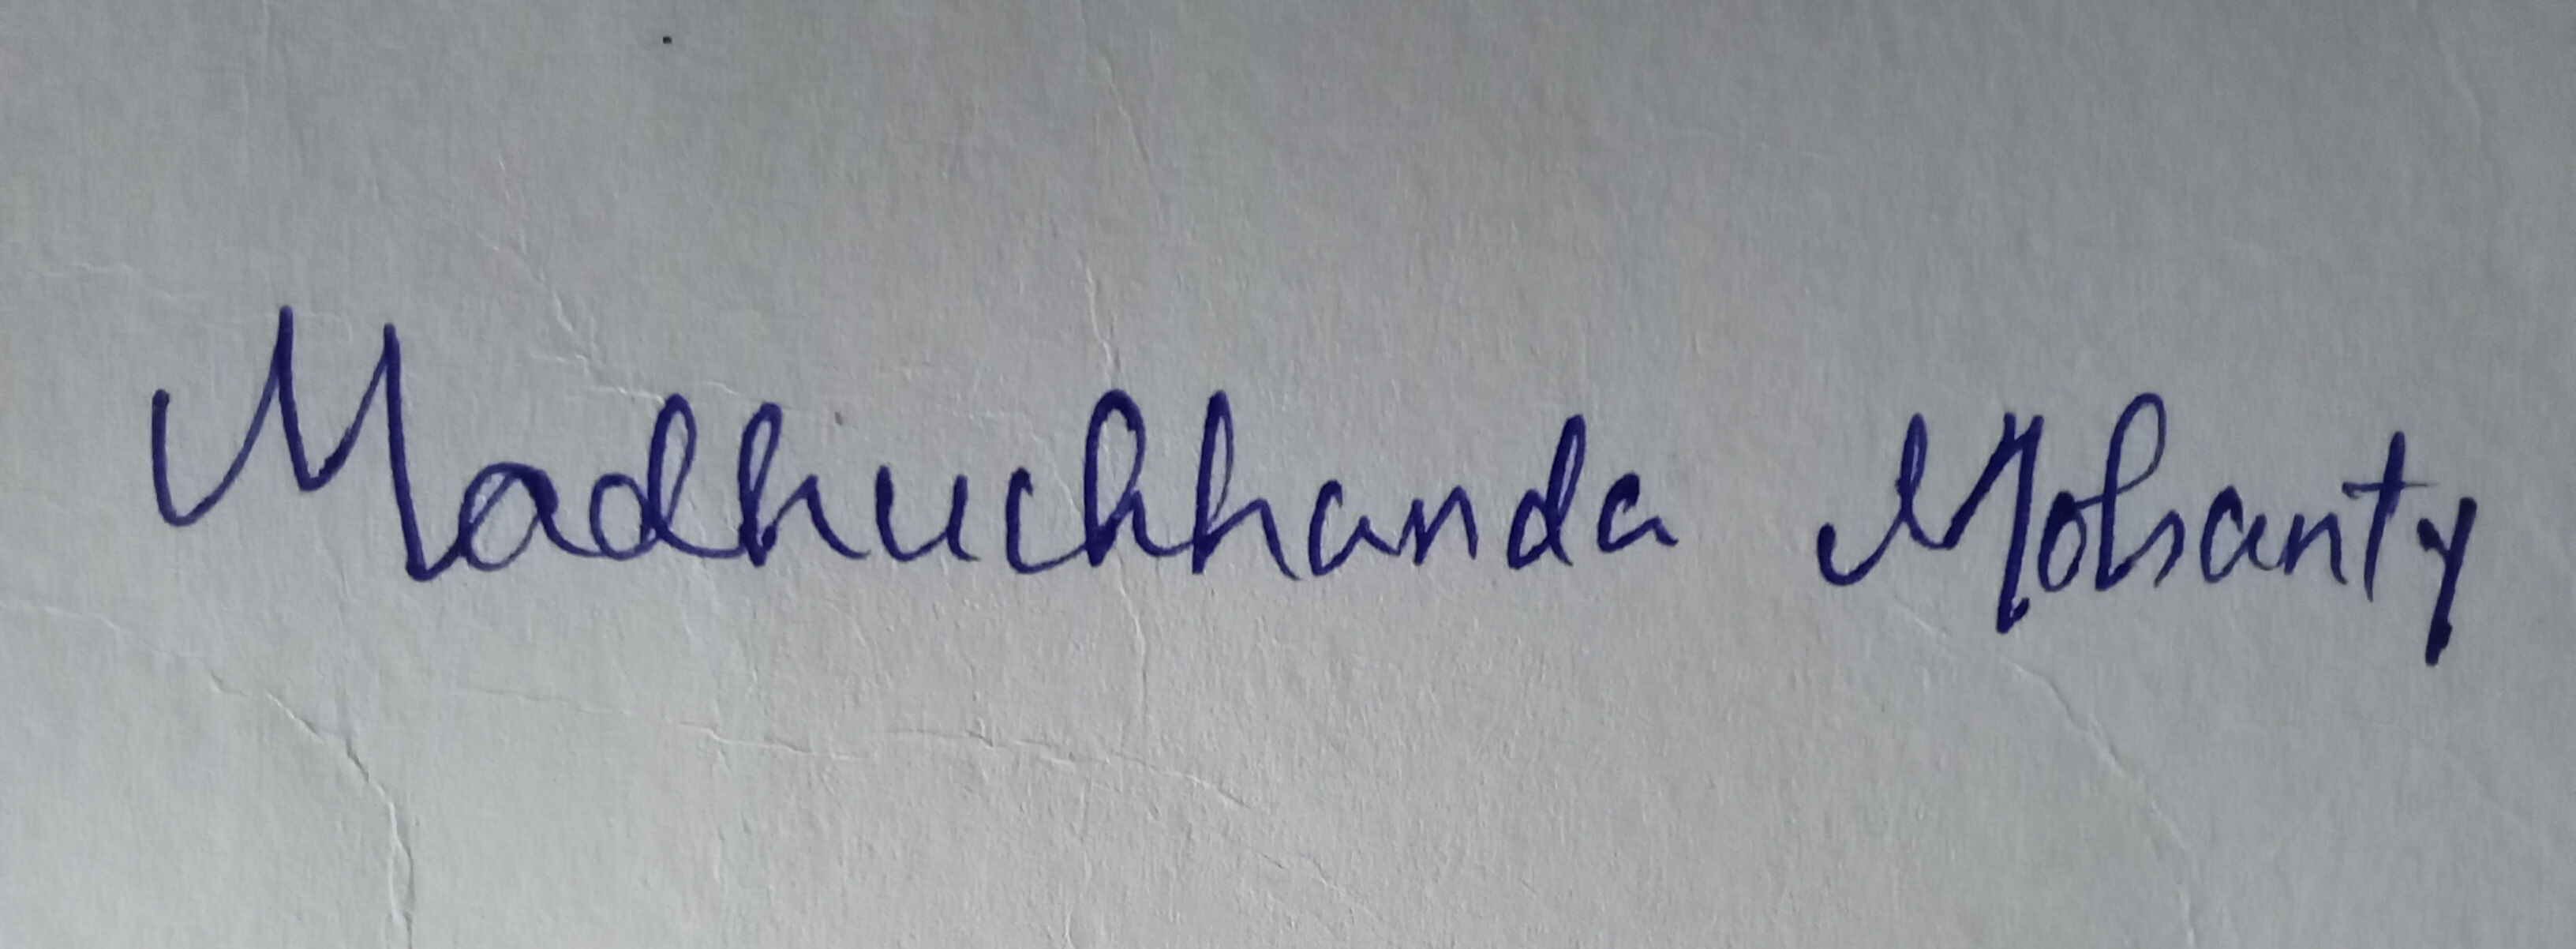 Madhuchhanda Mohanty